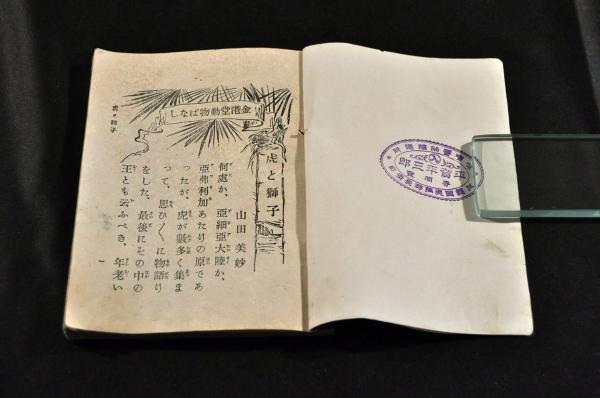 金港堂動物ばなし
虎と獅子
山田美妙
何處か、亞細亞大陸か、
亞弗利加あたりの原であ
つたが、虎が數多く集ま
つて、思ひ〳〵に物語り
をした、最後にその中の
王とも云ふべき、年老い
虎と獅子
一